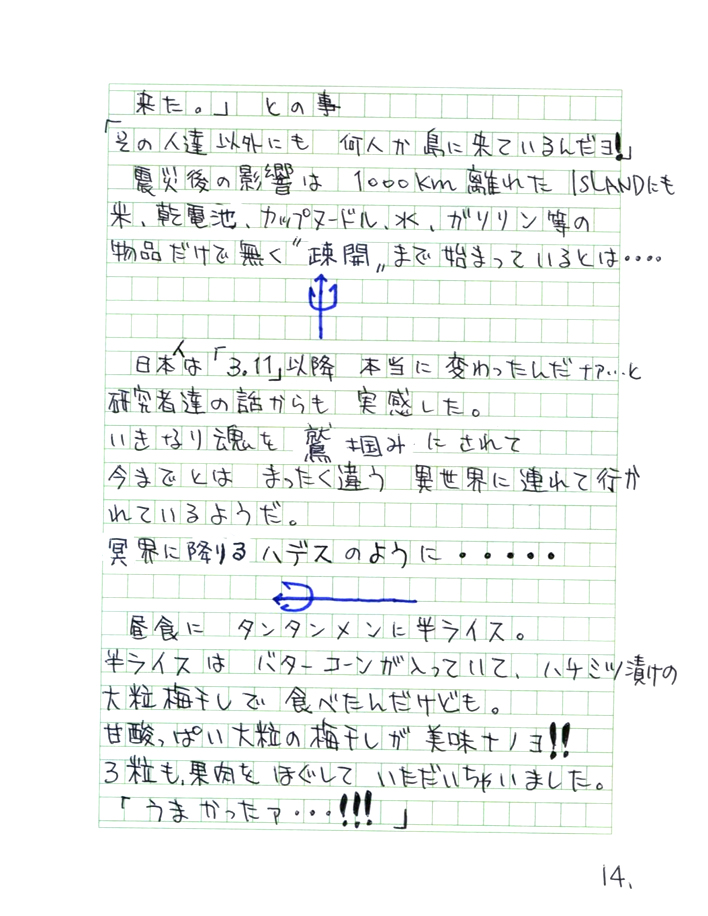 来た。」 との事
「その人達以外にも 何人か島に来ているんだヨ!」
震災後の影響は 1000km離れた ISLANDにも
米、乾電池、カップヌードル、水、ガソリン等の
物品だけで無く〝疎開〟まで始まっているとは・・・・
日本人は「3.11」以降 本当に変わったんだナァ…と
研究者達の話からも 実感した。
いきなり魂を 鷲掴みにされて
今までとは まったく違う 異世界に連れて行か
れているようだ。
冥界に降りるハデスのように・・・・・
昼食に タンタンメンに半ライス。
半ライスは バターコーンが入っていて、ハチミツ漬けの
大粒梅干しで 食べたんだけども。
甘酸っぱい大粒の梅干しが 美味ナノヨ!!
3粒も、果肉を ほぐして いただいちゃいました。
「うまかったァ・・・!!!」
14.